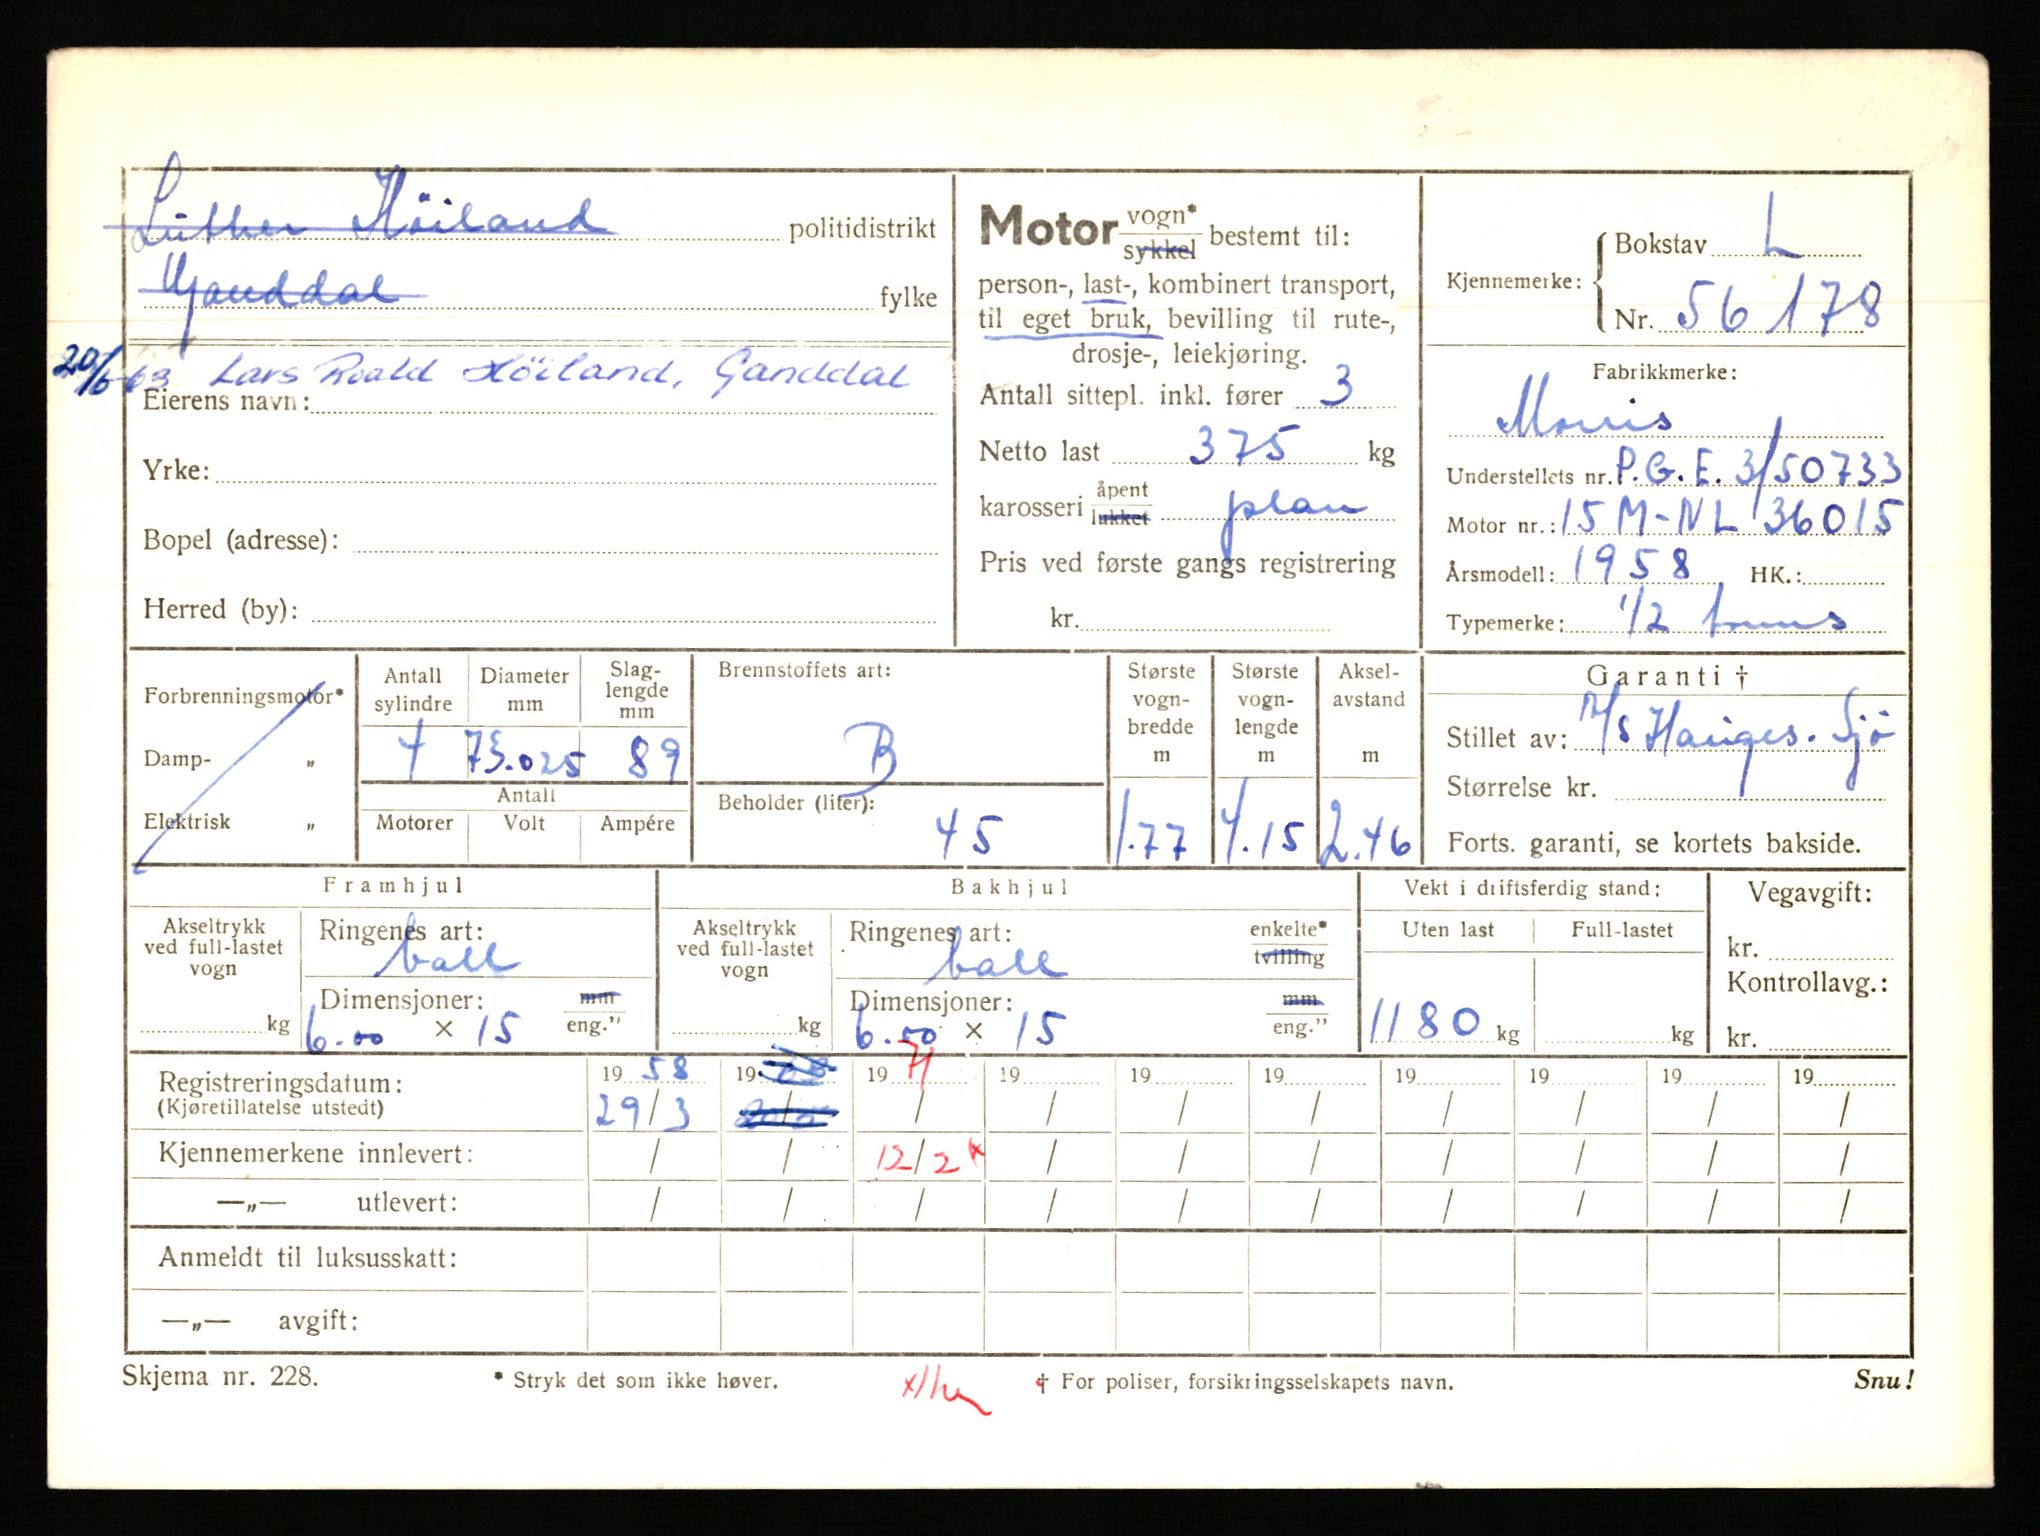 Luther Höiland politidistrikt
Ganddal fylke
20/6 63 Lars Roald Höiland, Ganddal
Eierens navn:
Yrke:
Bopel (adresse):
Herred (by):
Motor vogn* sykkel bestemt til:
person-, last-, kombinert transport,
til eget bruk, bevilling til rute-,
drosje-, leiekjøring.
Antall sittepl. inkl. fører 3
Netto last 375 kg
karosseri åpent lukket plan
Pris ved første gangs registrering
kr.
Kjennemerke: Bokstav L
Nr. 56178
Fabrikkmerke:
Morris
Understellets nr. P.G.E. 3/50733
Motor nr.: 15 M-NL 36015
Årsmodell: 1958 HK.:
Typemerke: 1/2 tonns
Forbrenningsmotor*
Damp- „
Elektrisk „
Antall sylindre Diameter mm Slag-lengde mm
4 73.025 89
Antall
Motorer Volt Ampére
Brennstoffets art:
B
Beholder (liter):
45
Største vogn-bredde m
1.77
Største vogn-lengde m
4.15
Aksel-avstand m
2.46
Garanti †
Stillet av: A/S Hauges. Sjö
Størrelse kr.
Forts. garanti, se kortets bakside.
Framhjul
Akseltrykk ved full-lastet vogn
kg
Ringenes art:
ball
Dimensjoner: mm
6.00 × 15 eng."
Bakhjul
Akseltrykk ved full-lastet vogn
kg
Ringenes art: enkelte* tvilling
ball
Dimensjoner: mm
6.00 × 15 eng."
Vekt i driftsferdig stand:
Uten last Full-lastet
1180 kg kg
Vegavgift:
kr.
Kontrollavg.:
kr.
Registreringsdatum: 19 58 19 19 71 19 19 19 19 19 19 19
(Kjøretillatelse utstedt) 29/3 / / / / / / / /
Kjennemerkene innlevert: / / 12/2 x / / / / / / /
—„— utlevert: / / / / / / / / / /
Anmeldt til luksusskatt:
—„— avgift:
Skjema nr. 228. * Stryk det som ikke høver. † For poliser, forsikringsselskapets navn. Snu!